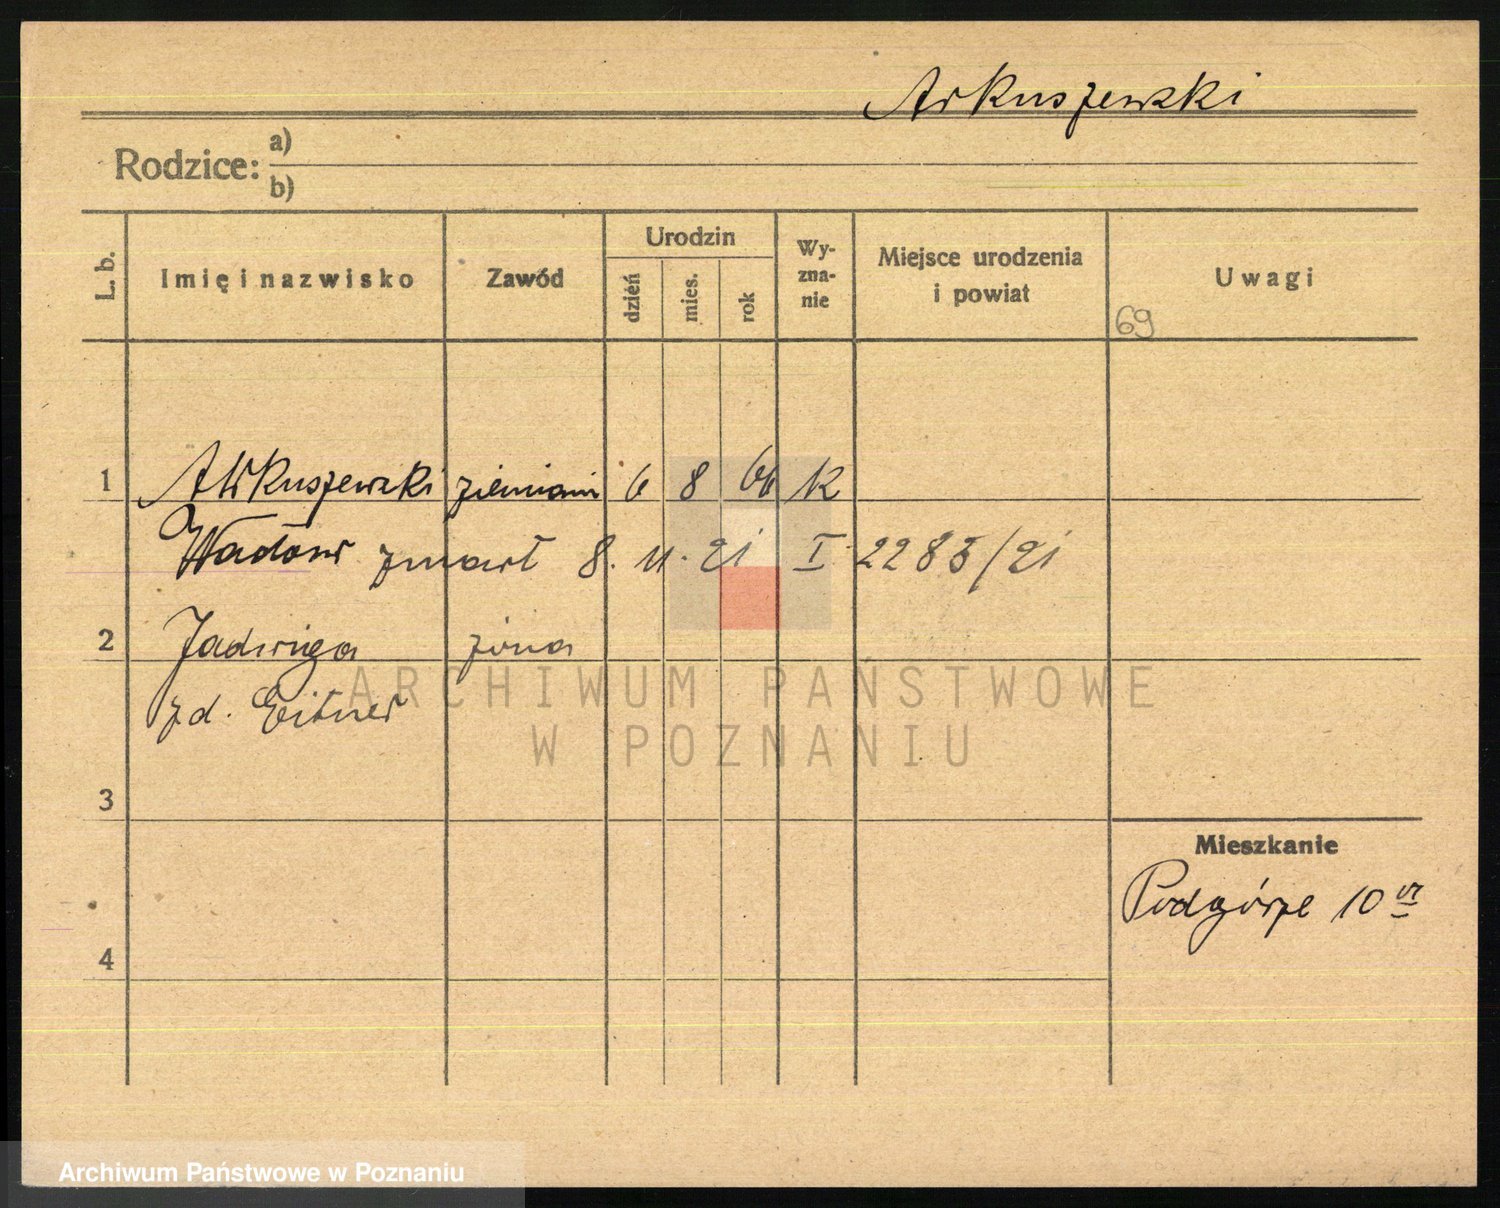 Arkuszewski
Rodzice: a)
b)
L. b.
Imię i nazwisko
Zawód
Urodzin
dzień
mies.
rok
Wy-
zna-
nie
Miejsce urodzenia
i powiat
Uwagi
69
1 Arkuszewski ziemianin 6 8 66 k
zmarł 8. 11. 21 I 2283/21
2 Jadwiga żona
zd. Eitner
3
4
Mieszkanie
Podgórze 10
ARCHIWUM PAŃSTWOWE
W POZNANIU
Archiwum Państwowe w Poznaniu